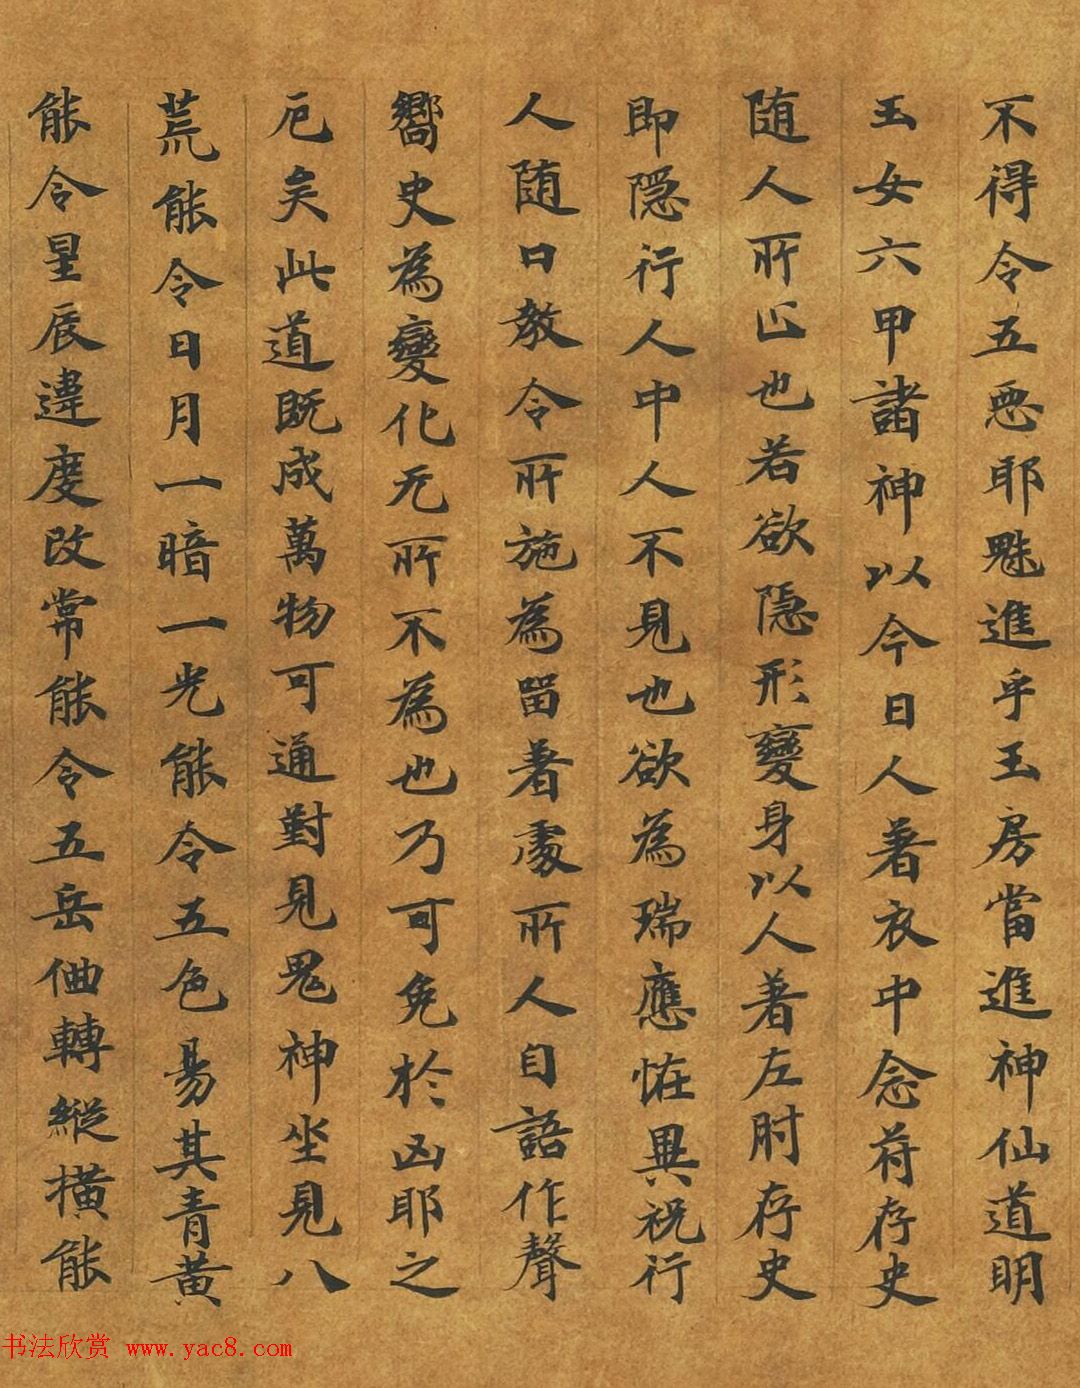 不得令五惡耶魅進乎玉房當進神仙道明
玉女六甲諸神以今日人著衣中念符存史
随人所止也若欲隠形變身以人著左肘存史
即隠行人中人不見也欲為瑞應恠異祝行
人随口教令所施為留著處所人自語作聲
嚮史為變化无所不為也乃可免於凶耶之
厄矣此道既成萬物可通對見鬼神坐見八
荒能令日月一暗一光能令五色易其青黃
能令星辰違度改常能令五岳佃轉縱橫能
书法欣赏 www.yac8.com